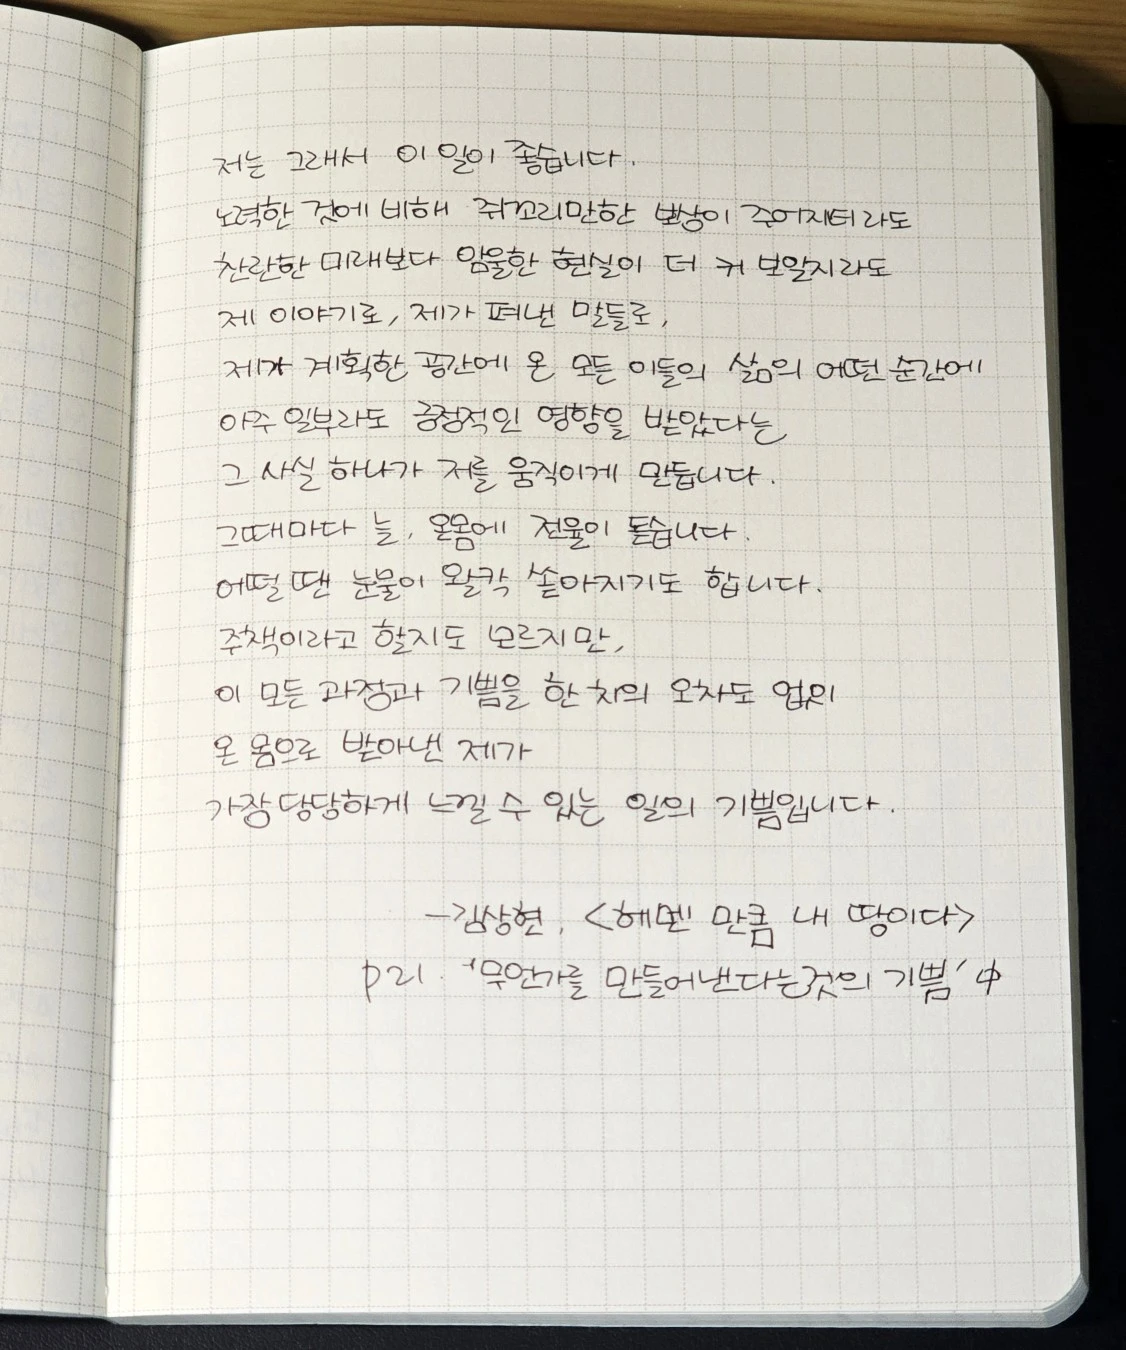 저는 그래서 이 일이 좋습니다.
노력한 것에 비해 쥐꼬리만한 보상이 주어지더라도
찬란한 미래보다 암울한 현실이 더 커 보일지라도
제 이야기로, 제가 펴낸 말들로,
제가 계획한 공간에 온 모든 이들의 삶의 어떤 순간에
아주 일부라도 긍정적인 영향을 받았다는
그 사실 하나가 저를 움직이게 만듭니다.
그때마다 늘, 온몸에 전율이 돋습니다.
어떨 땐 눈물이 왈칵 쏟아지기도 합니다.
주책이라고 할지도 모르지만,
이 모든 과정과 기쁨을 한 치의 오차도 없이
온 몸으로 받아낸 제가
가장 당당하게 느낄 수 있는 일의 기쁨입니다.
-김상현, <헤맨 만큼 내 땅이다>
p21. '무언가를 만들어낸다는것의 기쁨' 中